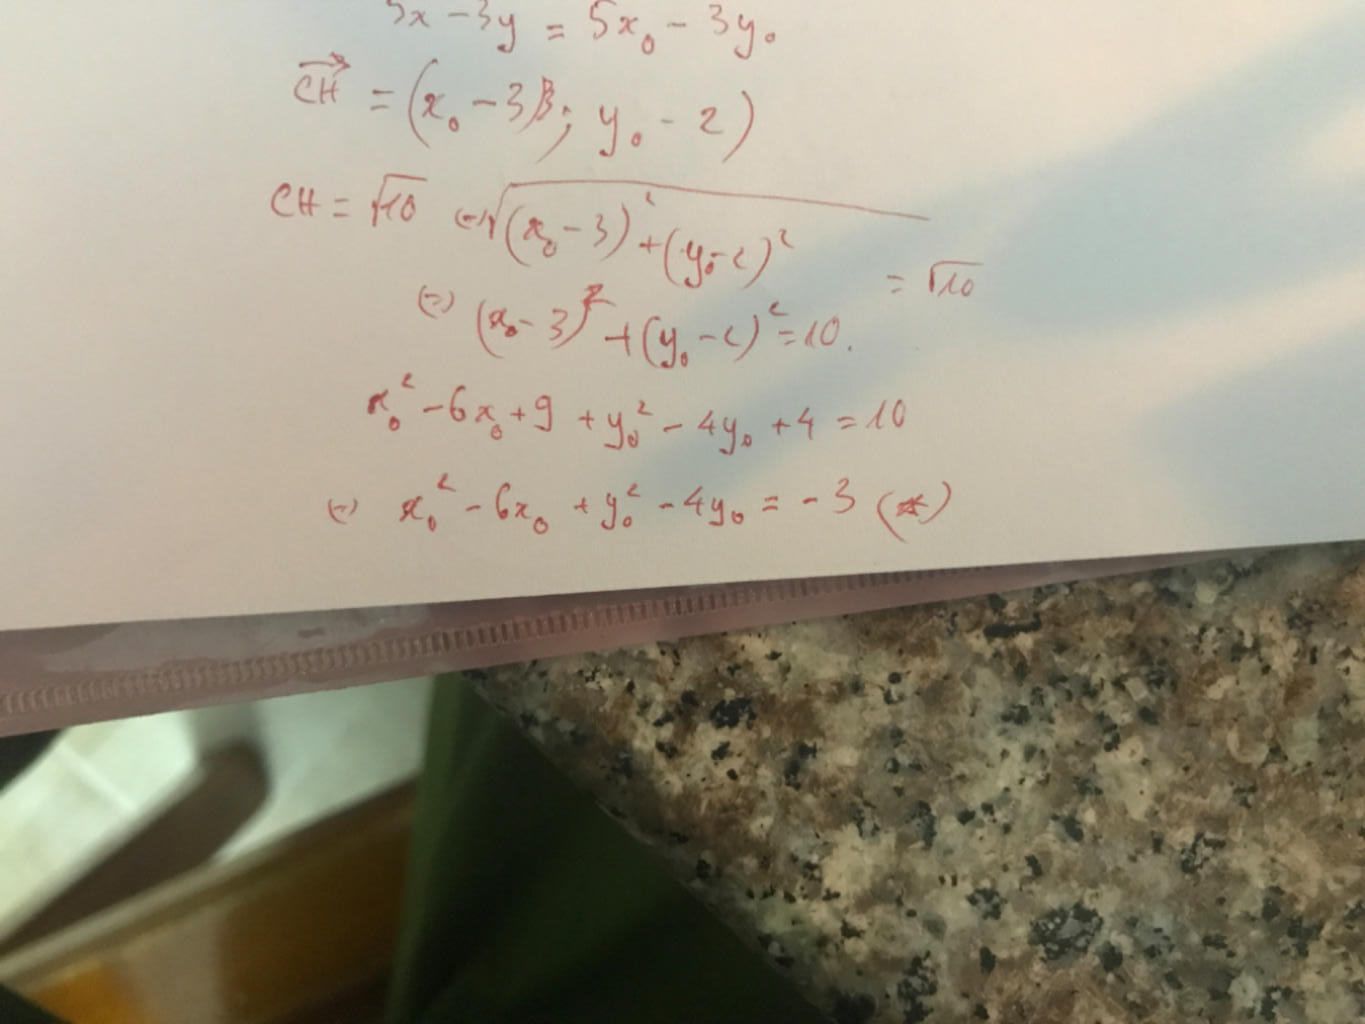 5x - 3y = 5x₀ - 3y₀
CH⃗ = (x₀ - 3); y₀ - 2)
CH = √10 ⇔ √((x₀ - 3)² + (y₀ - 2)²) = √10
⇔ (x₀ - 3)² + (y₀ - 2)² = 10.
x₀² - 6x₀ + 9 + y₀² - 4y₀ + 4 = 10
⇔ x₀² - 6x₀ + y₀² - 4y₀ = - 3 (*)